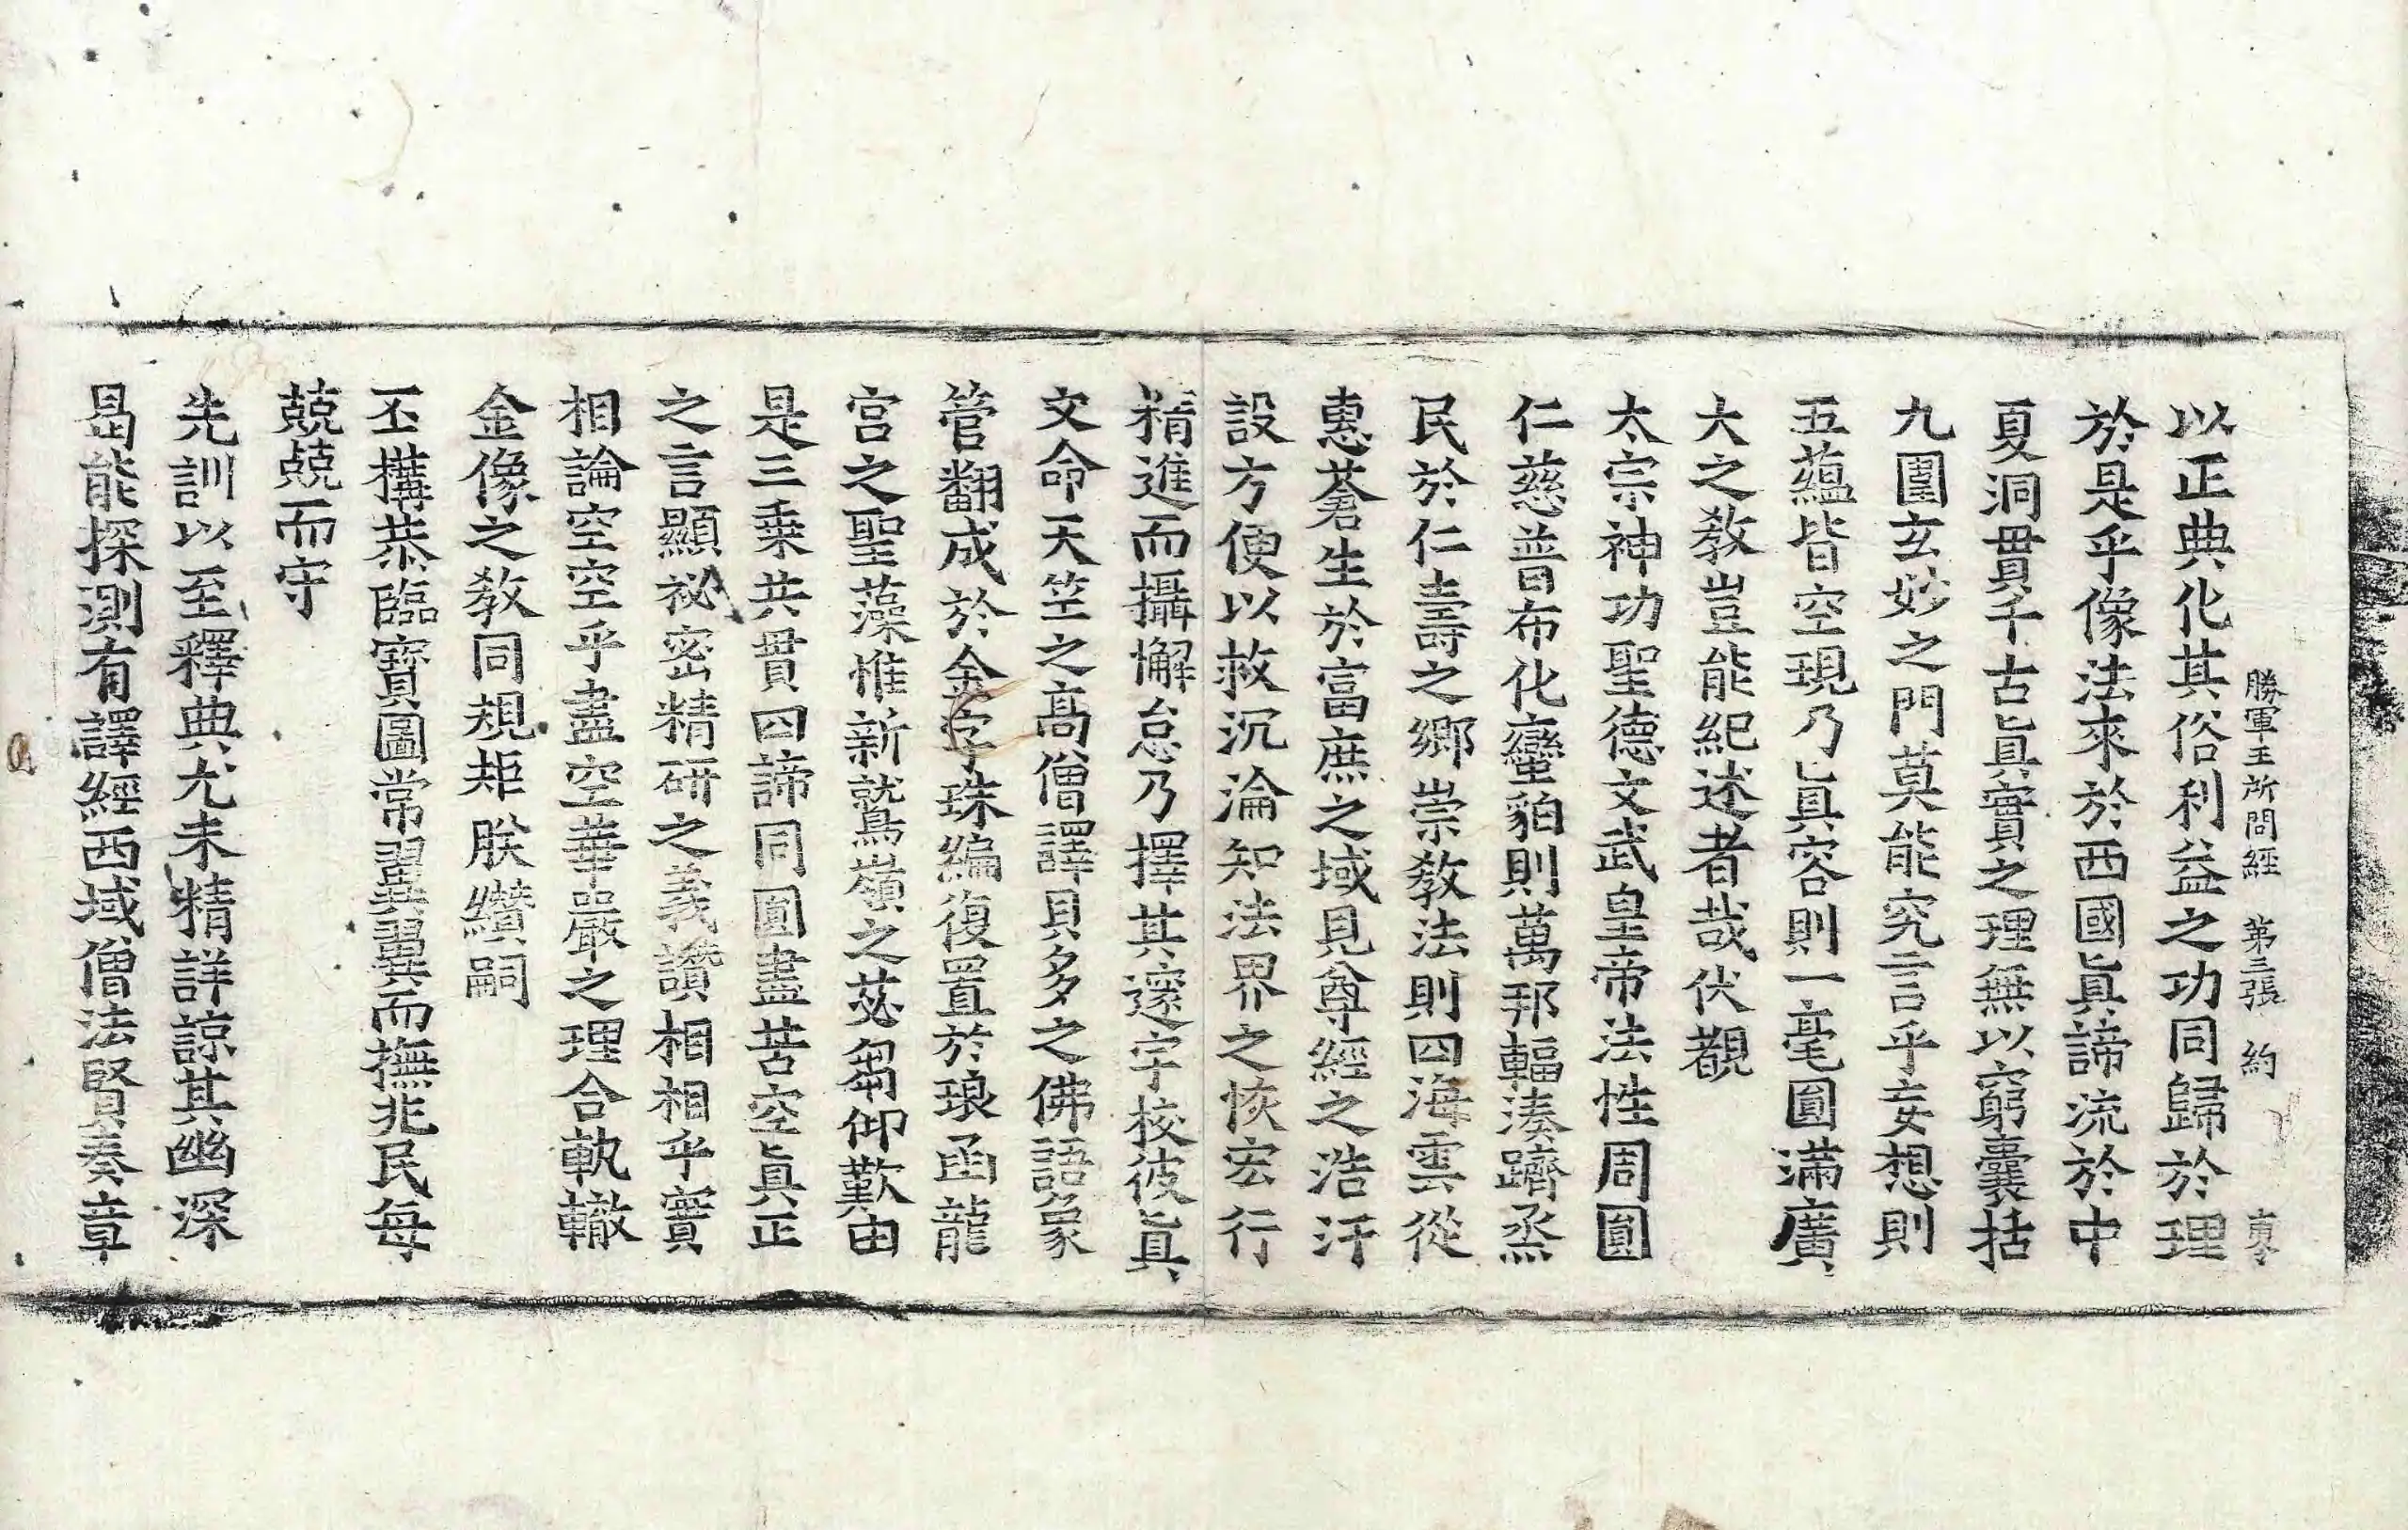 勝軍王所問經 第三張 約
以正典化其俗利益之功同歸於理
於是乎像法來於西國眞諦流於中
夏洞貫千古眞實之理無以窮囊括
九圍玄妙之門莫能究言乎妄想則
五蘊皆空現乃眞容則一毫圓滿廣
大之敎豈能紀述者哉伏覩
太宗神功聖德文武皇帝法性周圓
仁慈普布化蠻貊則萬邦輻湊躋烝
民於仁壽之鄉崇敎法則四海雲從
惠蒼生於富庶之域見尊經之浩汗
設方便以救沉淪知法界之恢宏行
精進而攝懈怠乃擇其邃宇校彼眞
文命天竺之高僧譯貝多之佛語象
管翻成於金字珠編復置於琅函龍
宮之聖藻惟新鷲嶺之苾蒭仰歎由
是三乗共貫四諦同圓盡苦空眞正
之言顯祕密精硏之義讚相相乎實
相論空空乎盡空華嚴之理合軌轍
金像之敎同規矩朕纘嗣
丕構恭臨寶圖常翼翼而撫兆民每
兢兢而守
先訓以至釋典尤未精詳諒其幽深
曷能探測有譯經西域僧法賢奏章